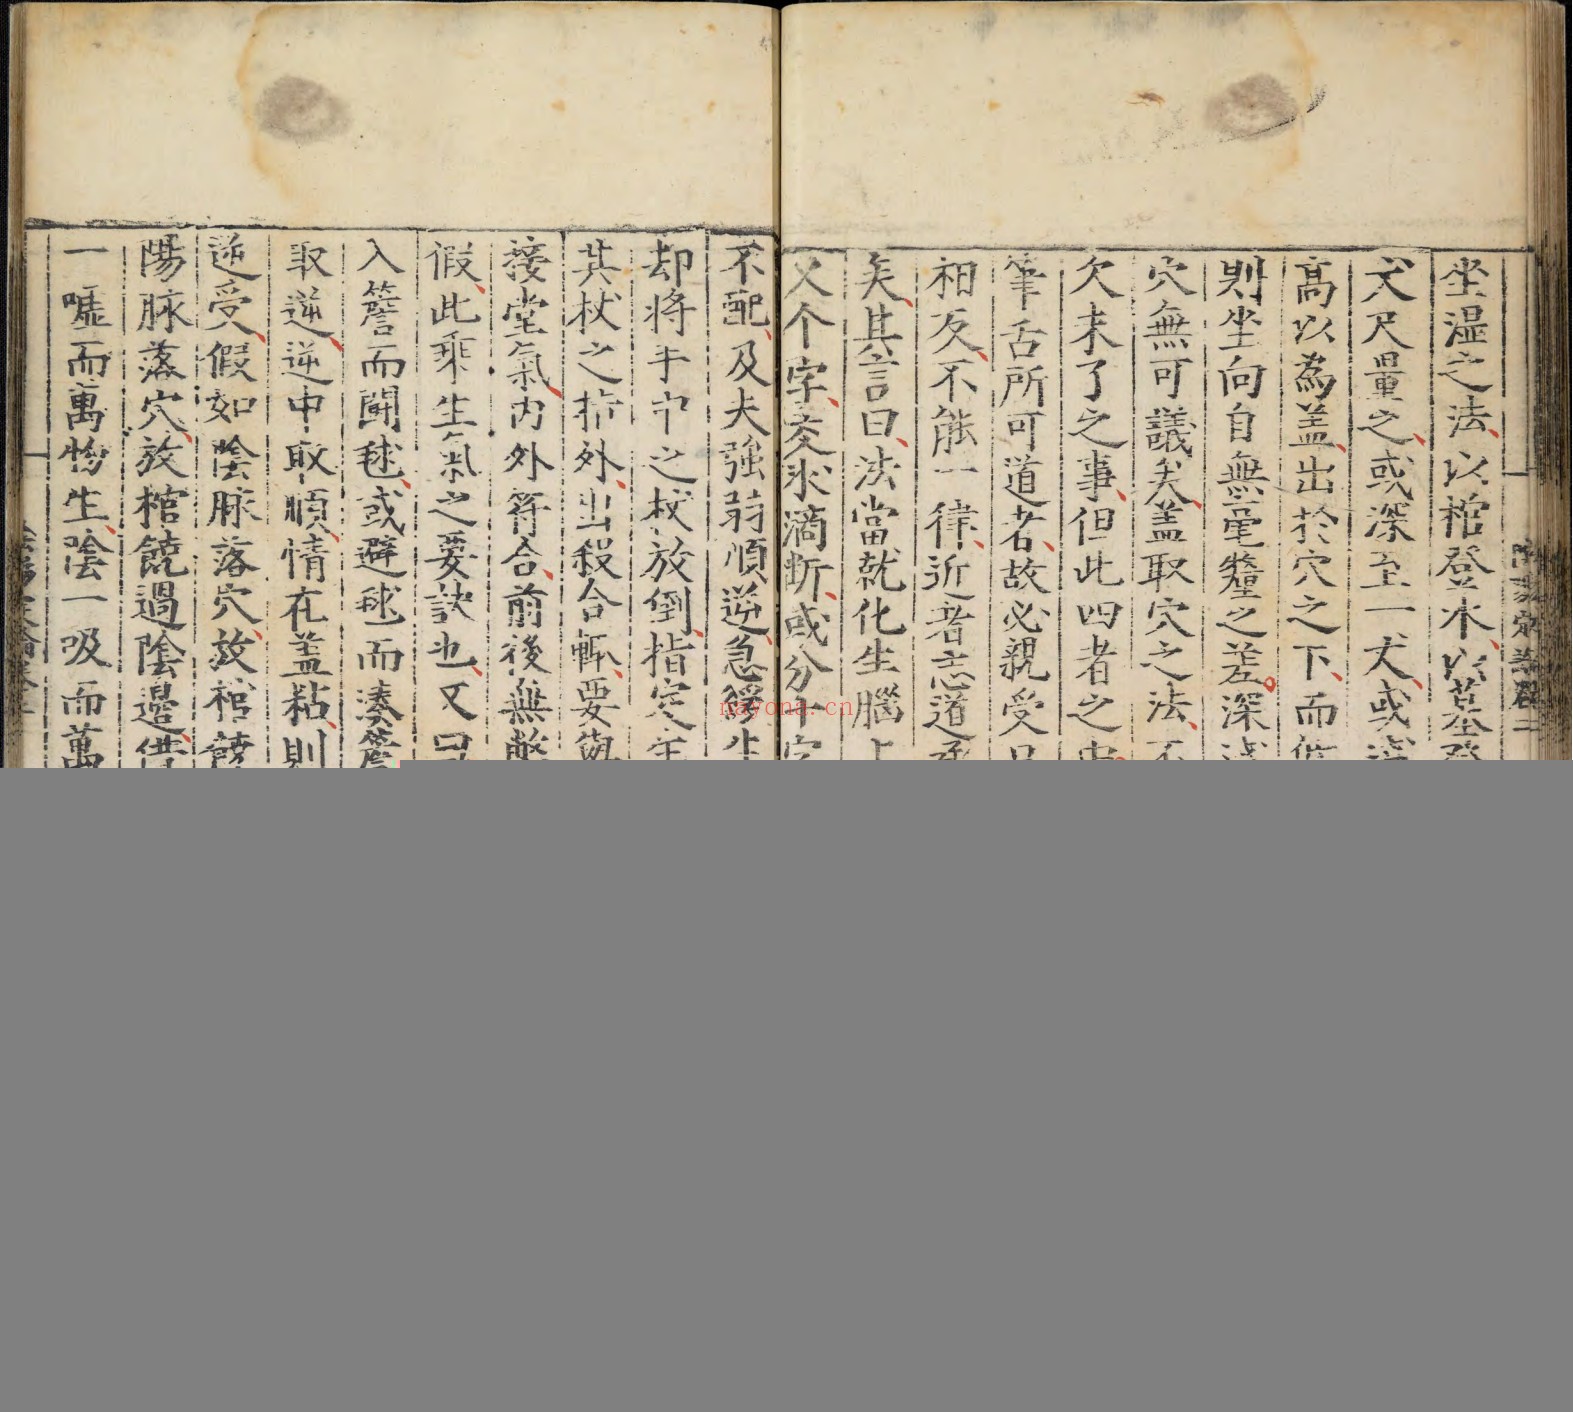 坐濕之法以棺登水以墓登
丈尺量之或深至一丈或淺
高以為盖出於穴之下而低
則坐向自無毫釐之差深淺
穴無可議矣盖取穴之法不
欠未了之事但此四者之中
筆舌所可道者故必親受口
相反不能一律近者志道
矣其言曰法當就化生腦上
乂个字交水滴断或分十字
不配及夫強弱順逆急緩生
却将手中之杖放倒指定
其杖之指外出殺合輒要
接堂氣内外符合前後無
假此乘生氣之要訣也又曰
入簷而鬭毬或避毬而湊簷
取逆逆中取順情在盖粘則
逆受假如陰脉落穴放棺饒
陽脉落穴放棺饒過陰邊借
一噓而萬物生陰一吸而萬
nayona.cn